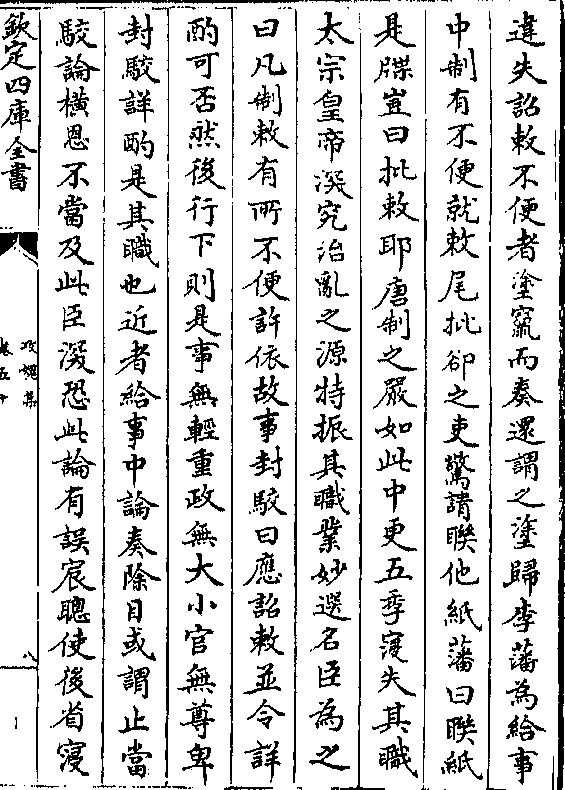 違失詔敕不便者塗竄而奏還謂之塗歸李藩為給事
中制有不便就敕尾批卻之吏驚請聨他紙藩曰聨紙
是牒豈曰批敕耶唐制之嚴如此中更五季寖失其職
太宗皇帝深究治亂之源特振其職業妙選名臣為之
曰凡制敕有所不便許依故事封駮曰應詔敕並令詳
酌可否然後行下則是事無輕重政無大小官無尊卑
封駮詳酌是其職也近者給事中論奏除目或謂止當
駮論橫恩不當及此臣深恐此論有誤宸聰使後省寖
欽定四庫全書
攻媿集
卷五十
八